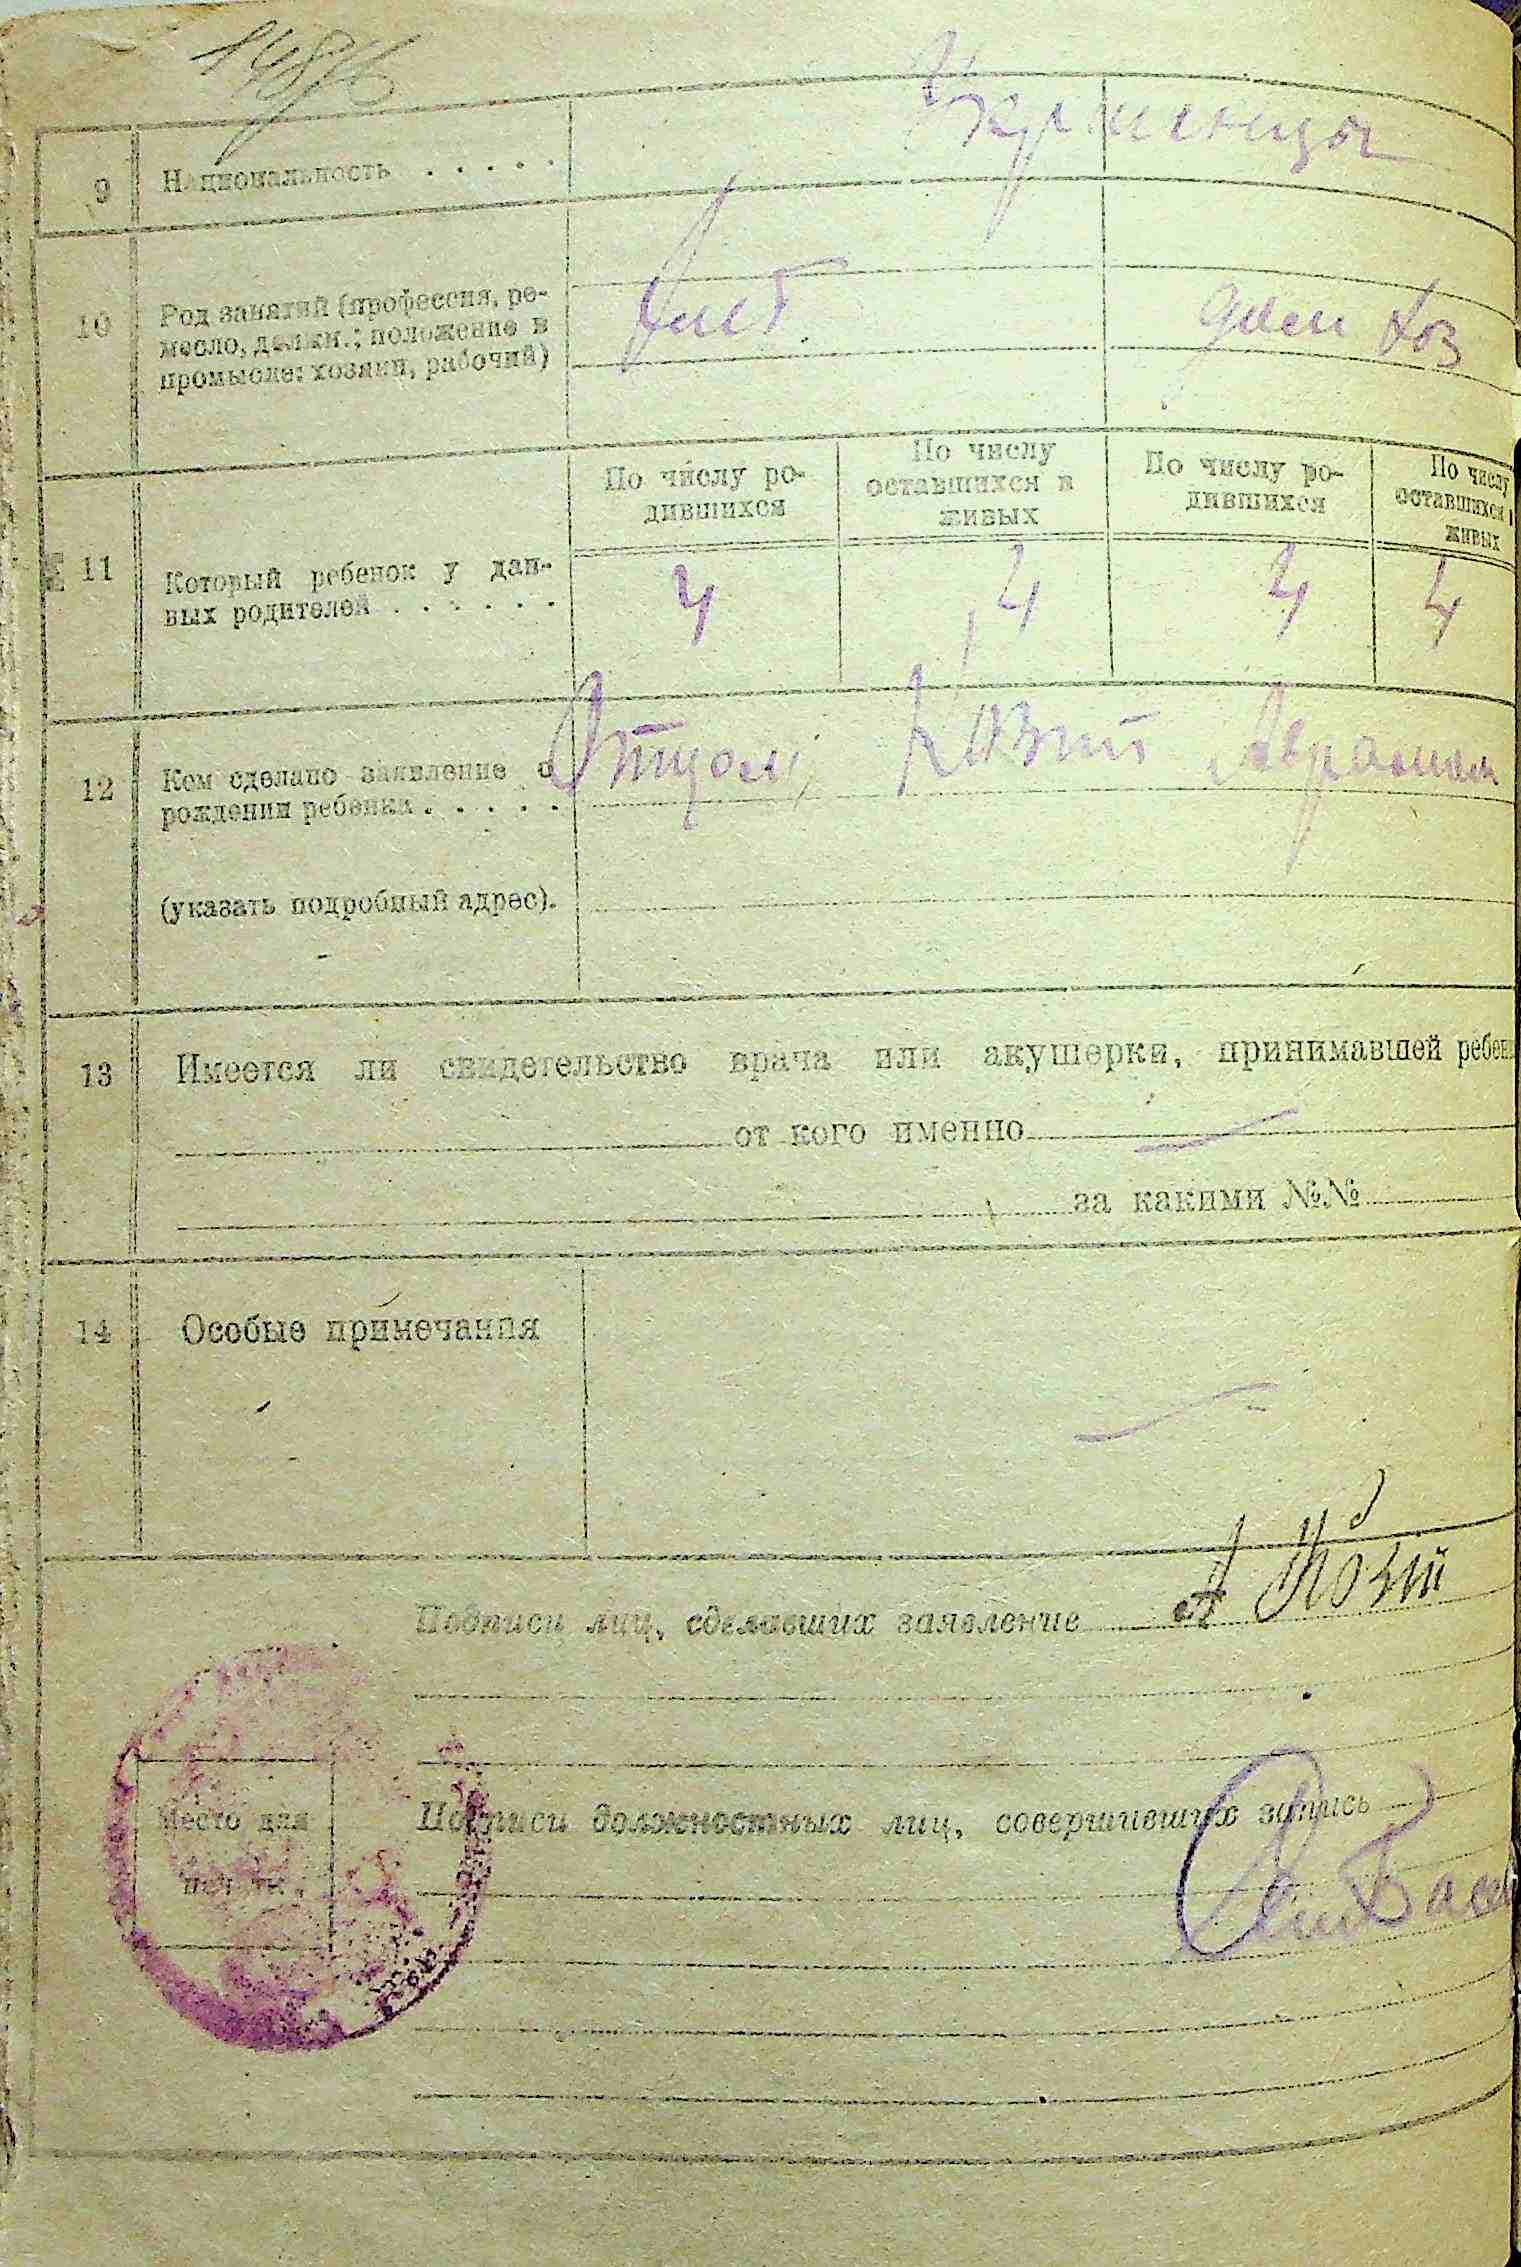 Украинцы
9 Национальность . . . . .
10 Род занятий (профессия, ре-
месло, должн.; положение в
промысле: хозяин, рабочий)
дом хоз
По числу ро-
дившихся
По числу
оставшихся в
живых
По числу ро-
дившихся
По числу
оставшихся в
живых
11 Который ребенок у дан-
ных родителей . . . . . .
4 4 4 4
12 Кем сделано заявление о
рождении ребенка . . . . .
Отцом, Козий Аврамом
(указать подробный адрес).
13 Имеется ли свидетельство врача или акушерки, принимавшей ребен
от кого именно
за какими №№
14 Особые примечания
Подписи лиц, сделавших заявление А Козий
Место для
печати.
Подписи должностных лиц, совершивших запись